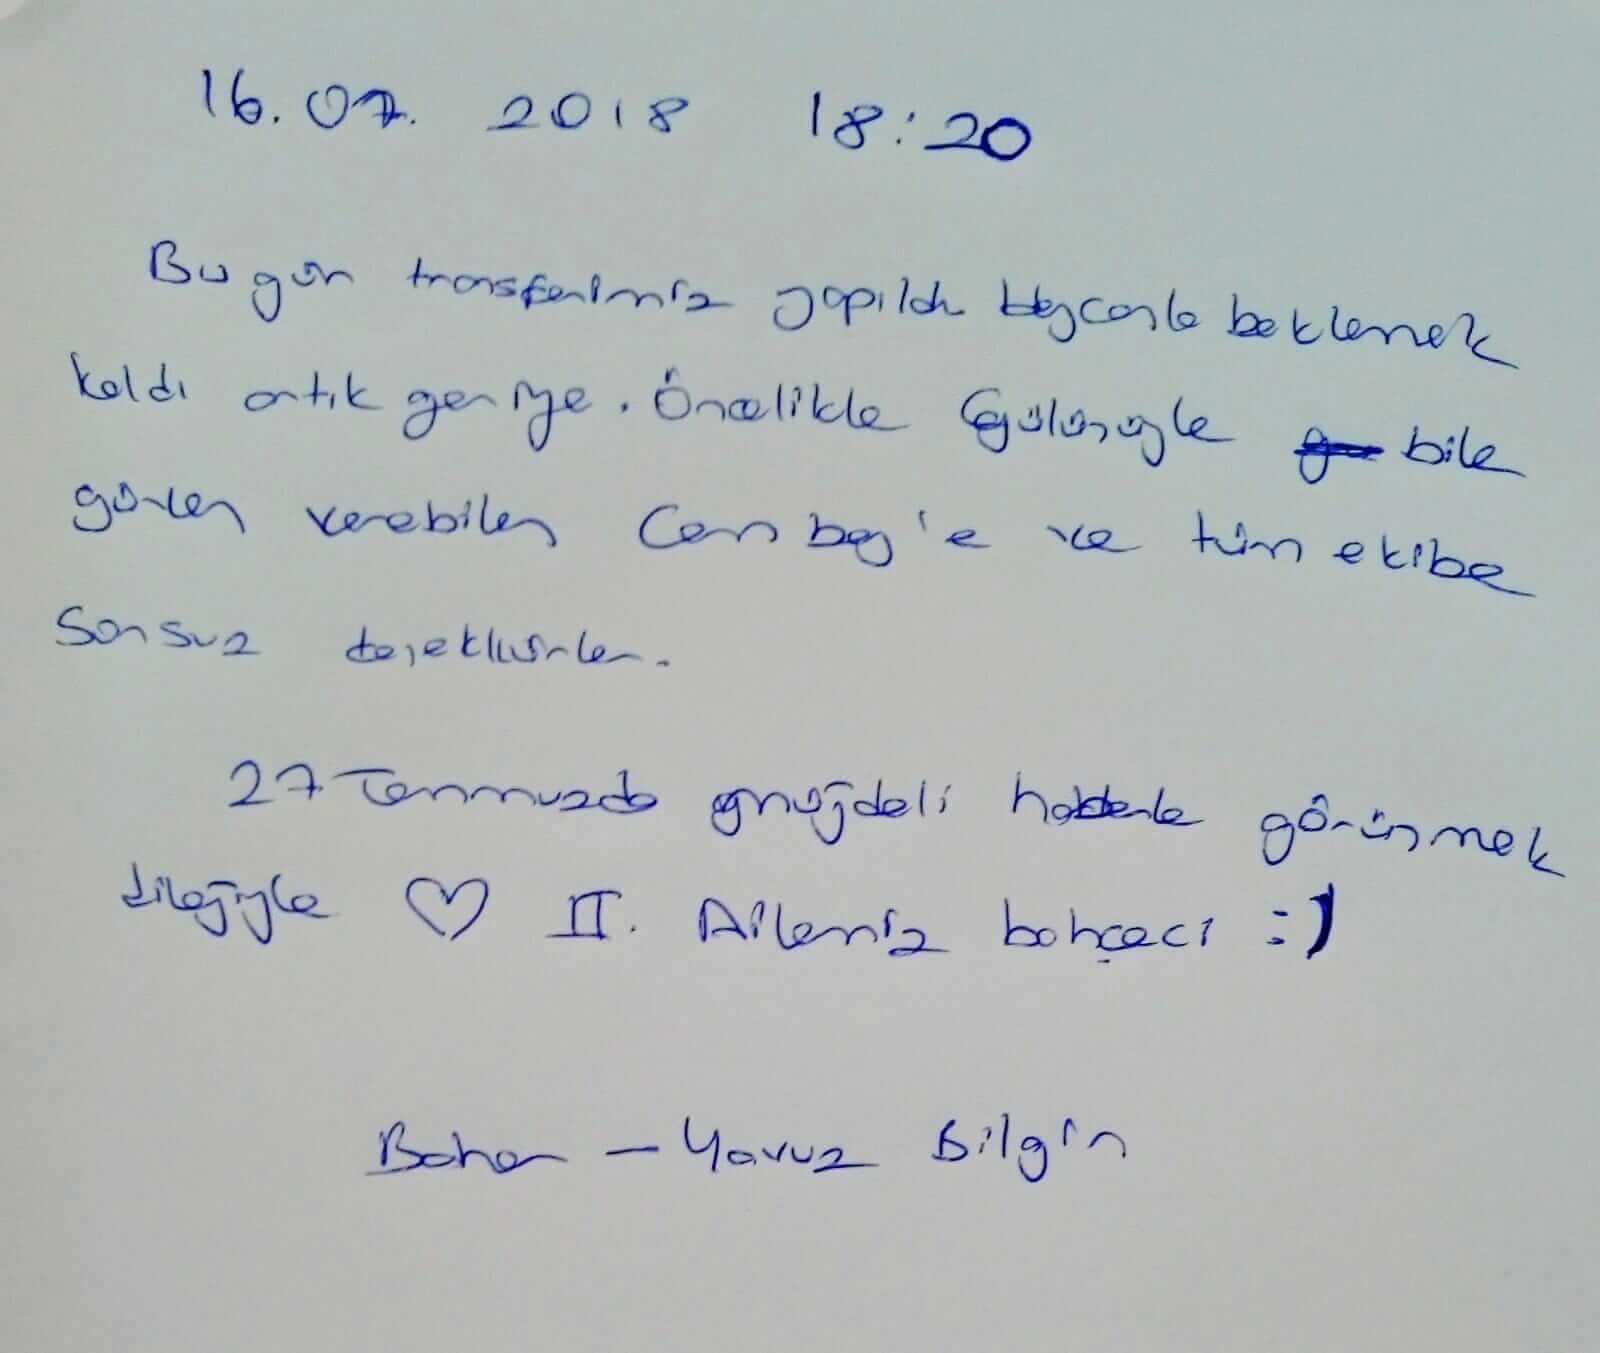 16.07.2018 18:20
Bugün transferimiz yapıldı heycanla beklemek
kaldı artık geriye. Öncelikle Gülüşüyle bile
güven verebilen Cem bey'e ve tüm ekibe
sonsuz teşekkürler.
27 Temmuzda müjdeli haberle görüşmek
dileğiyle ♡ II. Ailemiz bahçeci :)
Bahar - Yavuz Bilgin